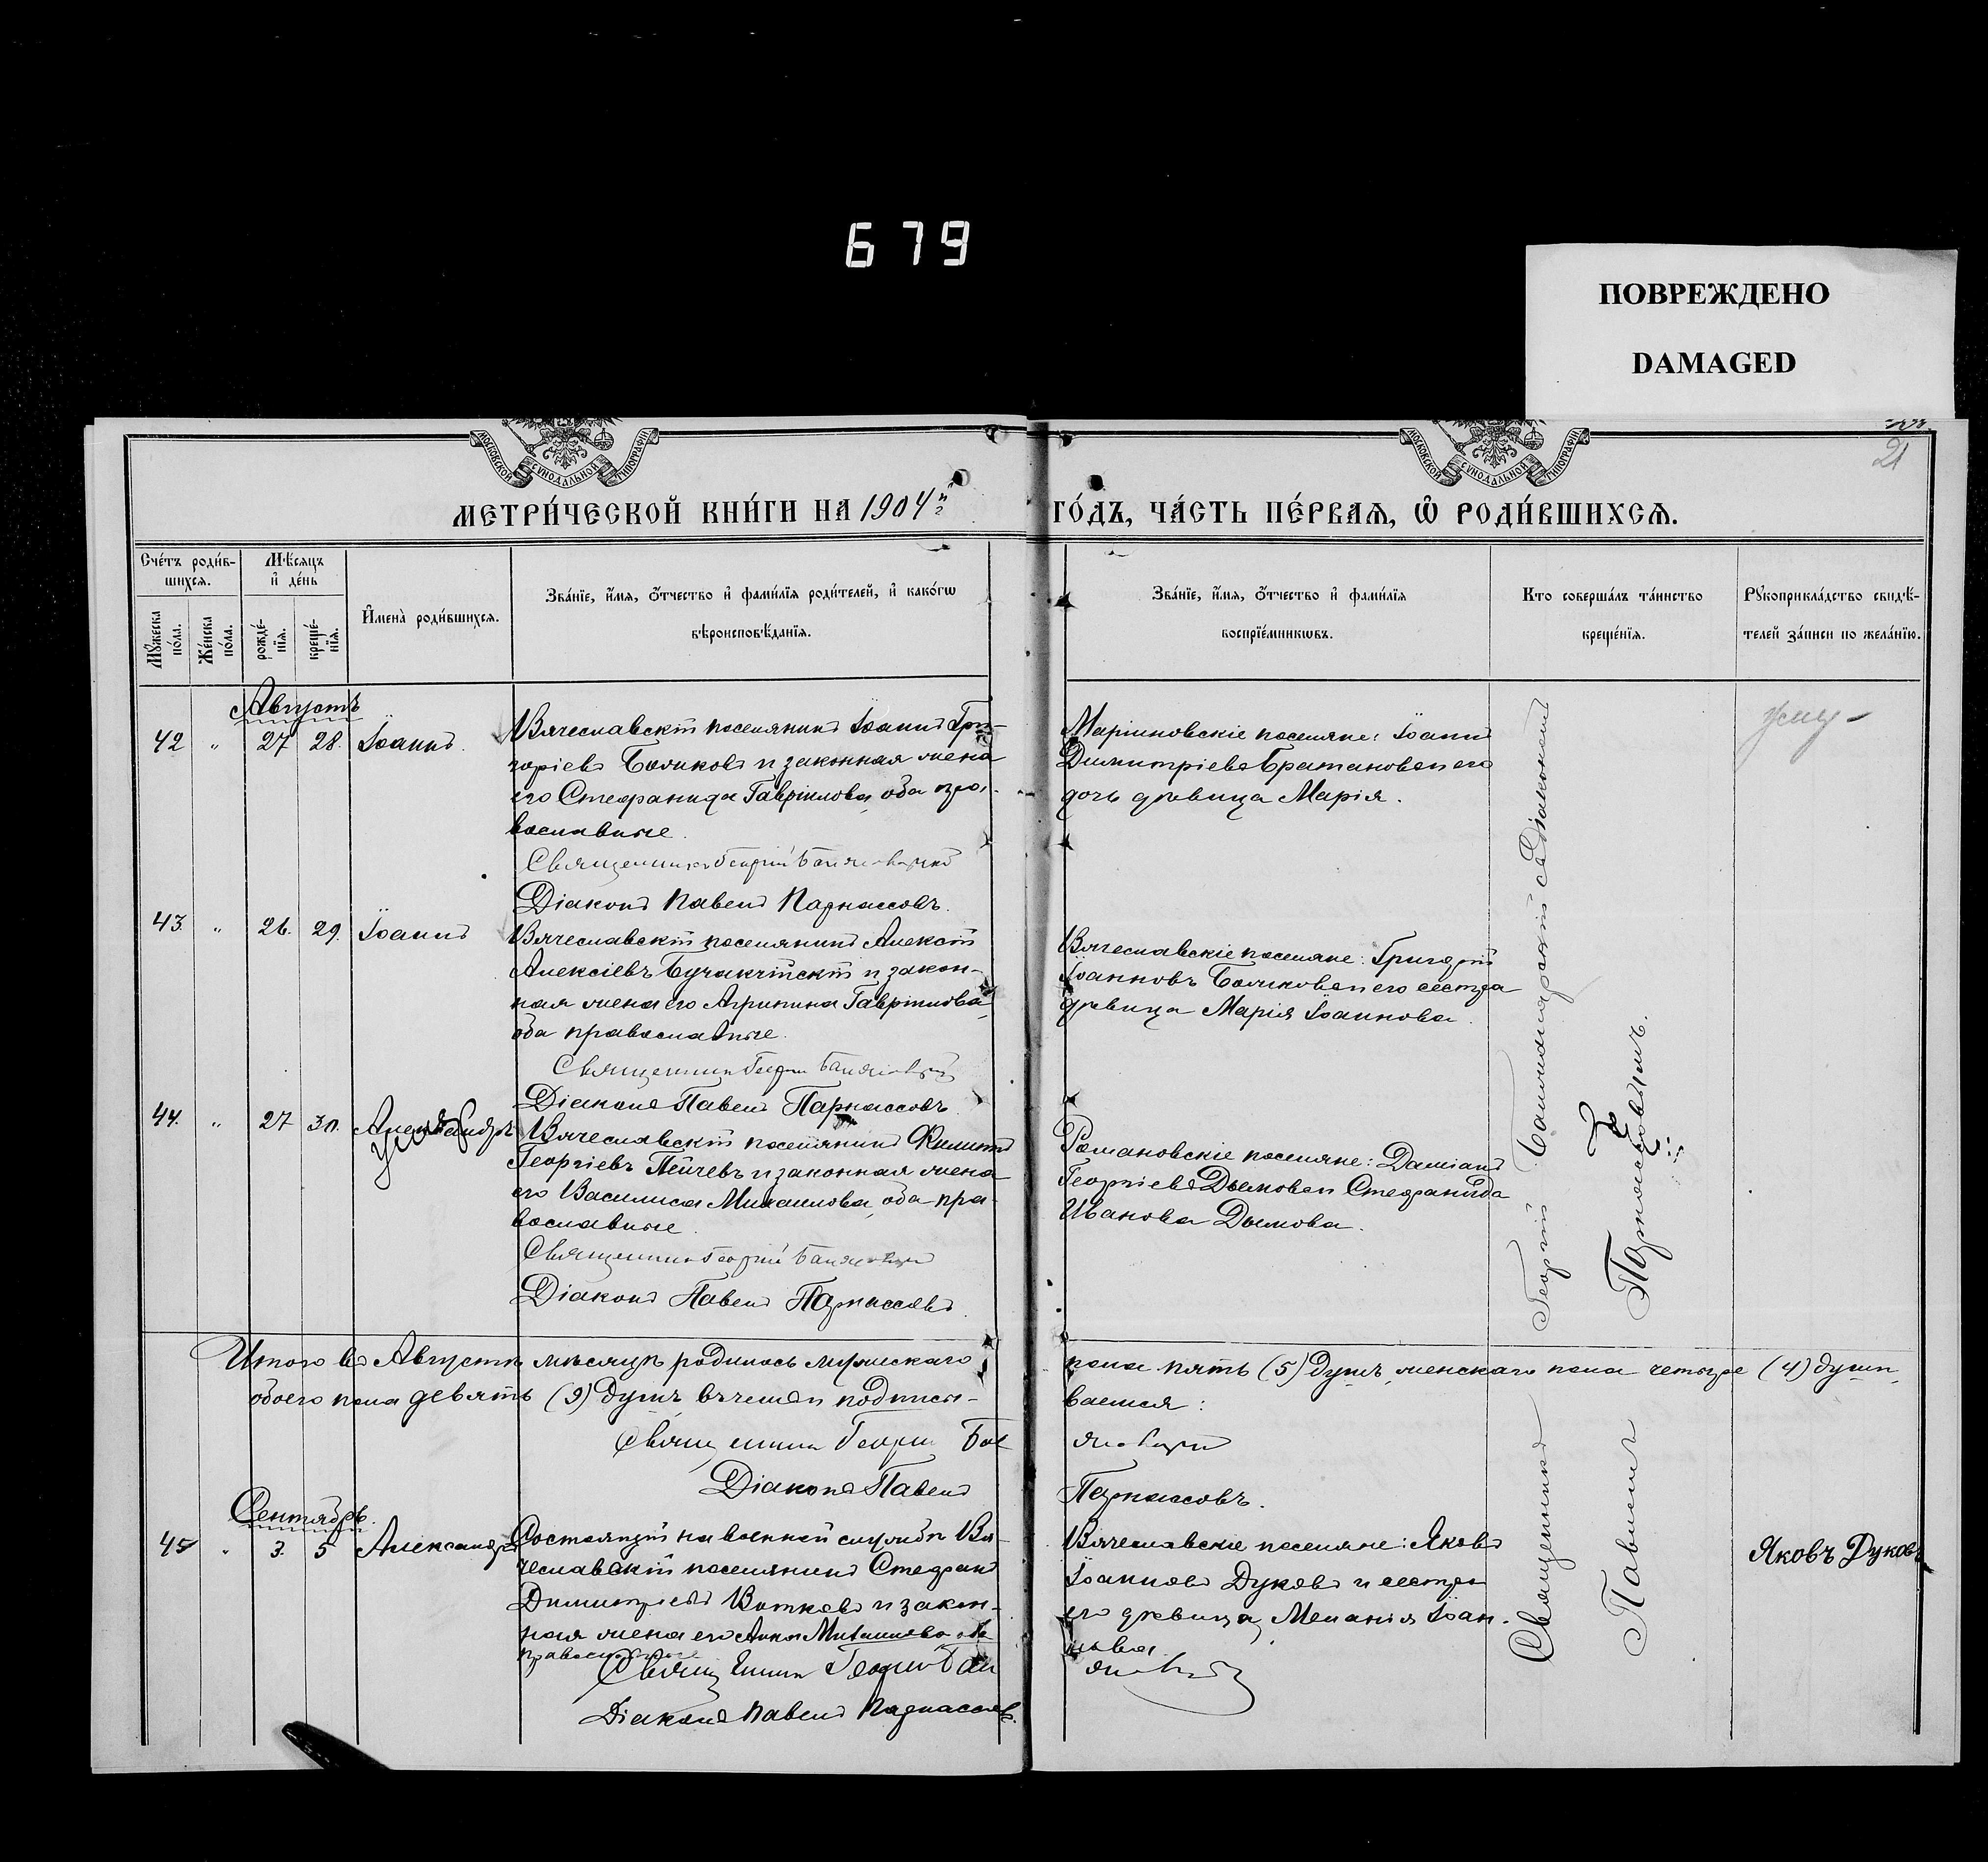 679
ПОВРЕЖДЕНО
DAMAGED
МОСКОВСКОЙ СѴНОДАЛЬНОЙ ТИПОГРАФІИ
МОСКОВСКОЙ СѴНОДАЛЬНОЙ ТИПОГРАФІИ
21
МЕТРИ́ЧЕСКОЙ КНИ́ГИ НА 1904й
ГО́ДЪ, ЧА́СТЬ ПЕ́РВАѦ, Ѡ҆ РОДИ́ВШИХСѦ.
Сче́тъ роди́в-
шихсѧ.
Мꙋжеска по́ла.
Же́нска по́ла.
Мѣ́сѧцъ
и҆ де́нь
рожде́-
нїѧ.
креще́-
нїѧ.
И҆мена̀ роди́вшихсѧ.
Зва́нїе, и҆́мѧ, ѻ҆́тчество и҆ фами́лїѧ роди́телей, и҆ како́гѡ
вѣроисповѣ́данїѧ.
Зва́нїе, и҆́мѧ, ѻ҆́тчество и҆ фами́лїѧ
воспрїе́мникѡвъ.
Кто соверша́лъ та́инство
креще́нїѧ.
Рꙋкоприкла́дство свидѣ́-
телей за́писи по жела́нїю.
Августъ
42 " 27 28. Іоаннъ.
Вячеславскій поселянинъ Іоаннъ Гри-
горіевъ Боликовъ и законная жена
его Стефанида Гавріилова, оба пра-
вославные.
Священникъ Георгій
Діаконъ Павелъ Парнассовъ.
Маріиновскіе поселяне: Іоаннъ
Димитріевъ Братановъ и его
дочь дѣвица Марія.
43. " 26. 29. Іоаннъ
Вячеславскій поселянинъ Алексій
Алексіевъ и закон-
ная жена его Агрипина Гавріилова,
оба православные.
Священникъ Георгій
Діаконъ Павелъ Парнассовъ.
Вячеславскіе поселяне: Григорій
Іоанновъ Боликовъ и его сестра
дѣвица Марія Іоаннова.
44. " 27 30. Александръ
Вячеславскій поселянинъ Филиппъ
Георгіевъ Пейчевъ и законная жена
его Василиса Михаилова, оба пра-
вославные.
Священникъ Георгій
Діаконъ Павелъ Парнассовъ.
Романовскіе поселяне: Даміанъ
Георгіевъ Дымовъ и Стефанида
Иванова Дымова.
Итого въ Августѣ мѣсяцѣ родилось мужескаго
пола пять (5) душъ, женскаго пола четыре (4) души,
обоего пола девять (9) душъ, въ чемъ и подписы-
вается:
Священникъ Георгій
Діаконъ Павелъ
Парнассовъ.
Сентябрь.
45 " 3. 5 Александръ
Состоящій на военной службѣ Вя-
чеславскій поселянинъ Стефанъ
Димитріевъ Волковъ и закон-
ная жена его Анна Михаилова оба
православные
Священникъ Георгій
Діаконъ Павелъ Парнассовъ.
Вячеславскіе поселяне: Яковъ
Іоанновъ Дуковъ и сестра
его дѣвица Меланія Іоан-
нова.
Священникъ Георгій съ Діакономъ
Павломъ Парнассовымъ.
Яковъ Дуковъ